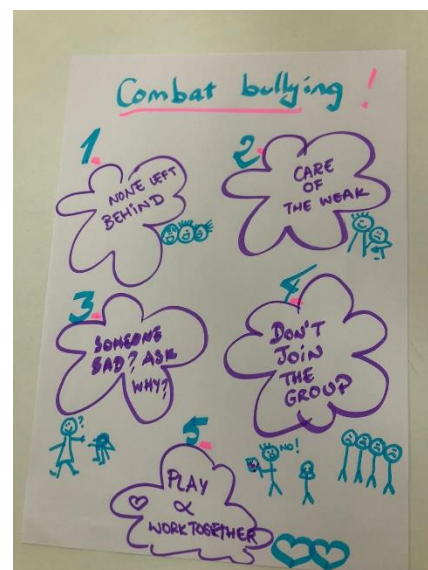 Combat bullying!
1.
NONE LEFT
BEHIND
2.
CARE
OF
THE WEAK
3.
SOMEONE
SAD? ASK
WHY?
?
4.
DON'T
JOIN
THE
GROUP
NO!
5.
PLAY
&
WORK TOGETHER